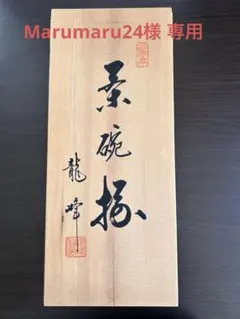 Marumaru24様 専用
茶碗揃
龍峰